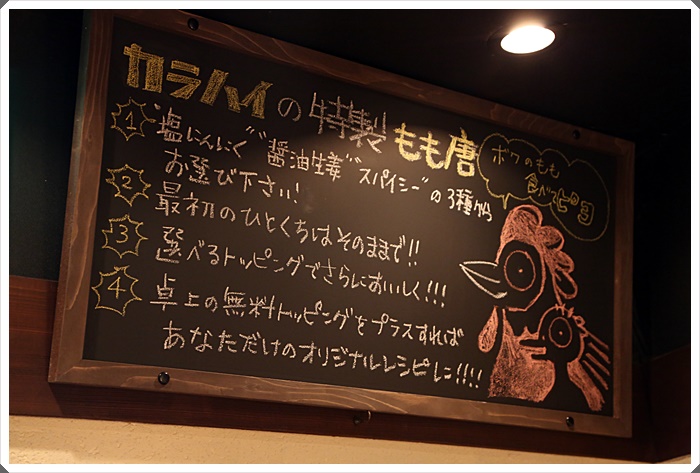 カラハイの特製もも唐
1 "塩にんにく" "醤油生姜" "スパイシー"の3種から
お選び下さい!
2 最初のひとくちはそのままで!!
3 選べるトッピングでさらにおいしく!!!
4 卓上の無料トッピングをプラスすれば
あなただけのオリジナルレシピに!!!!
ボクのもも
食べてピヨ